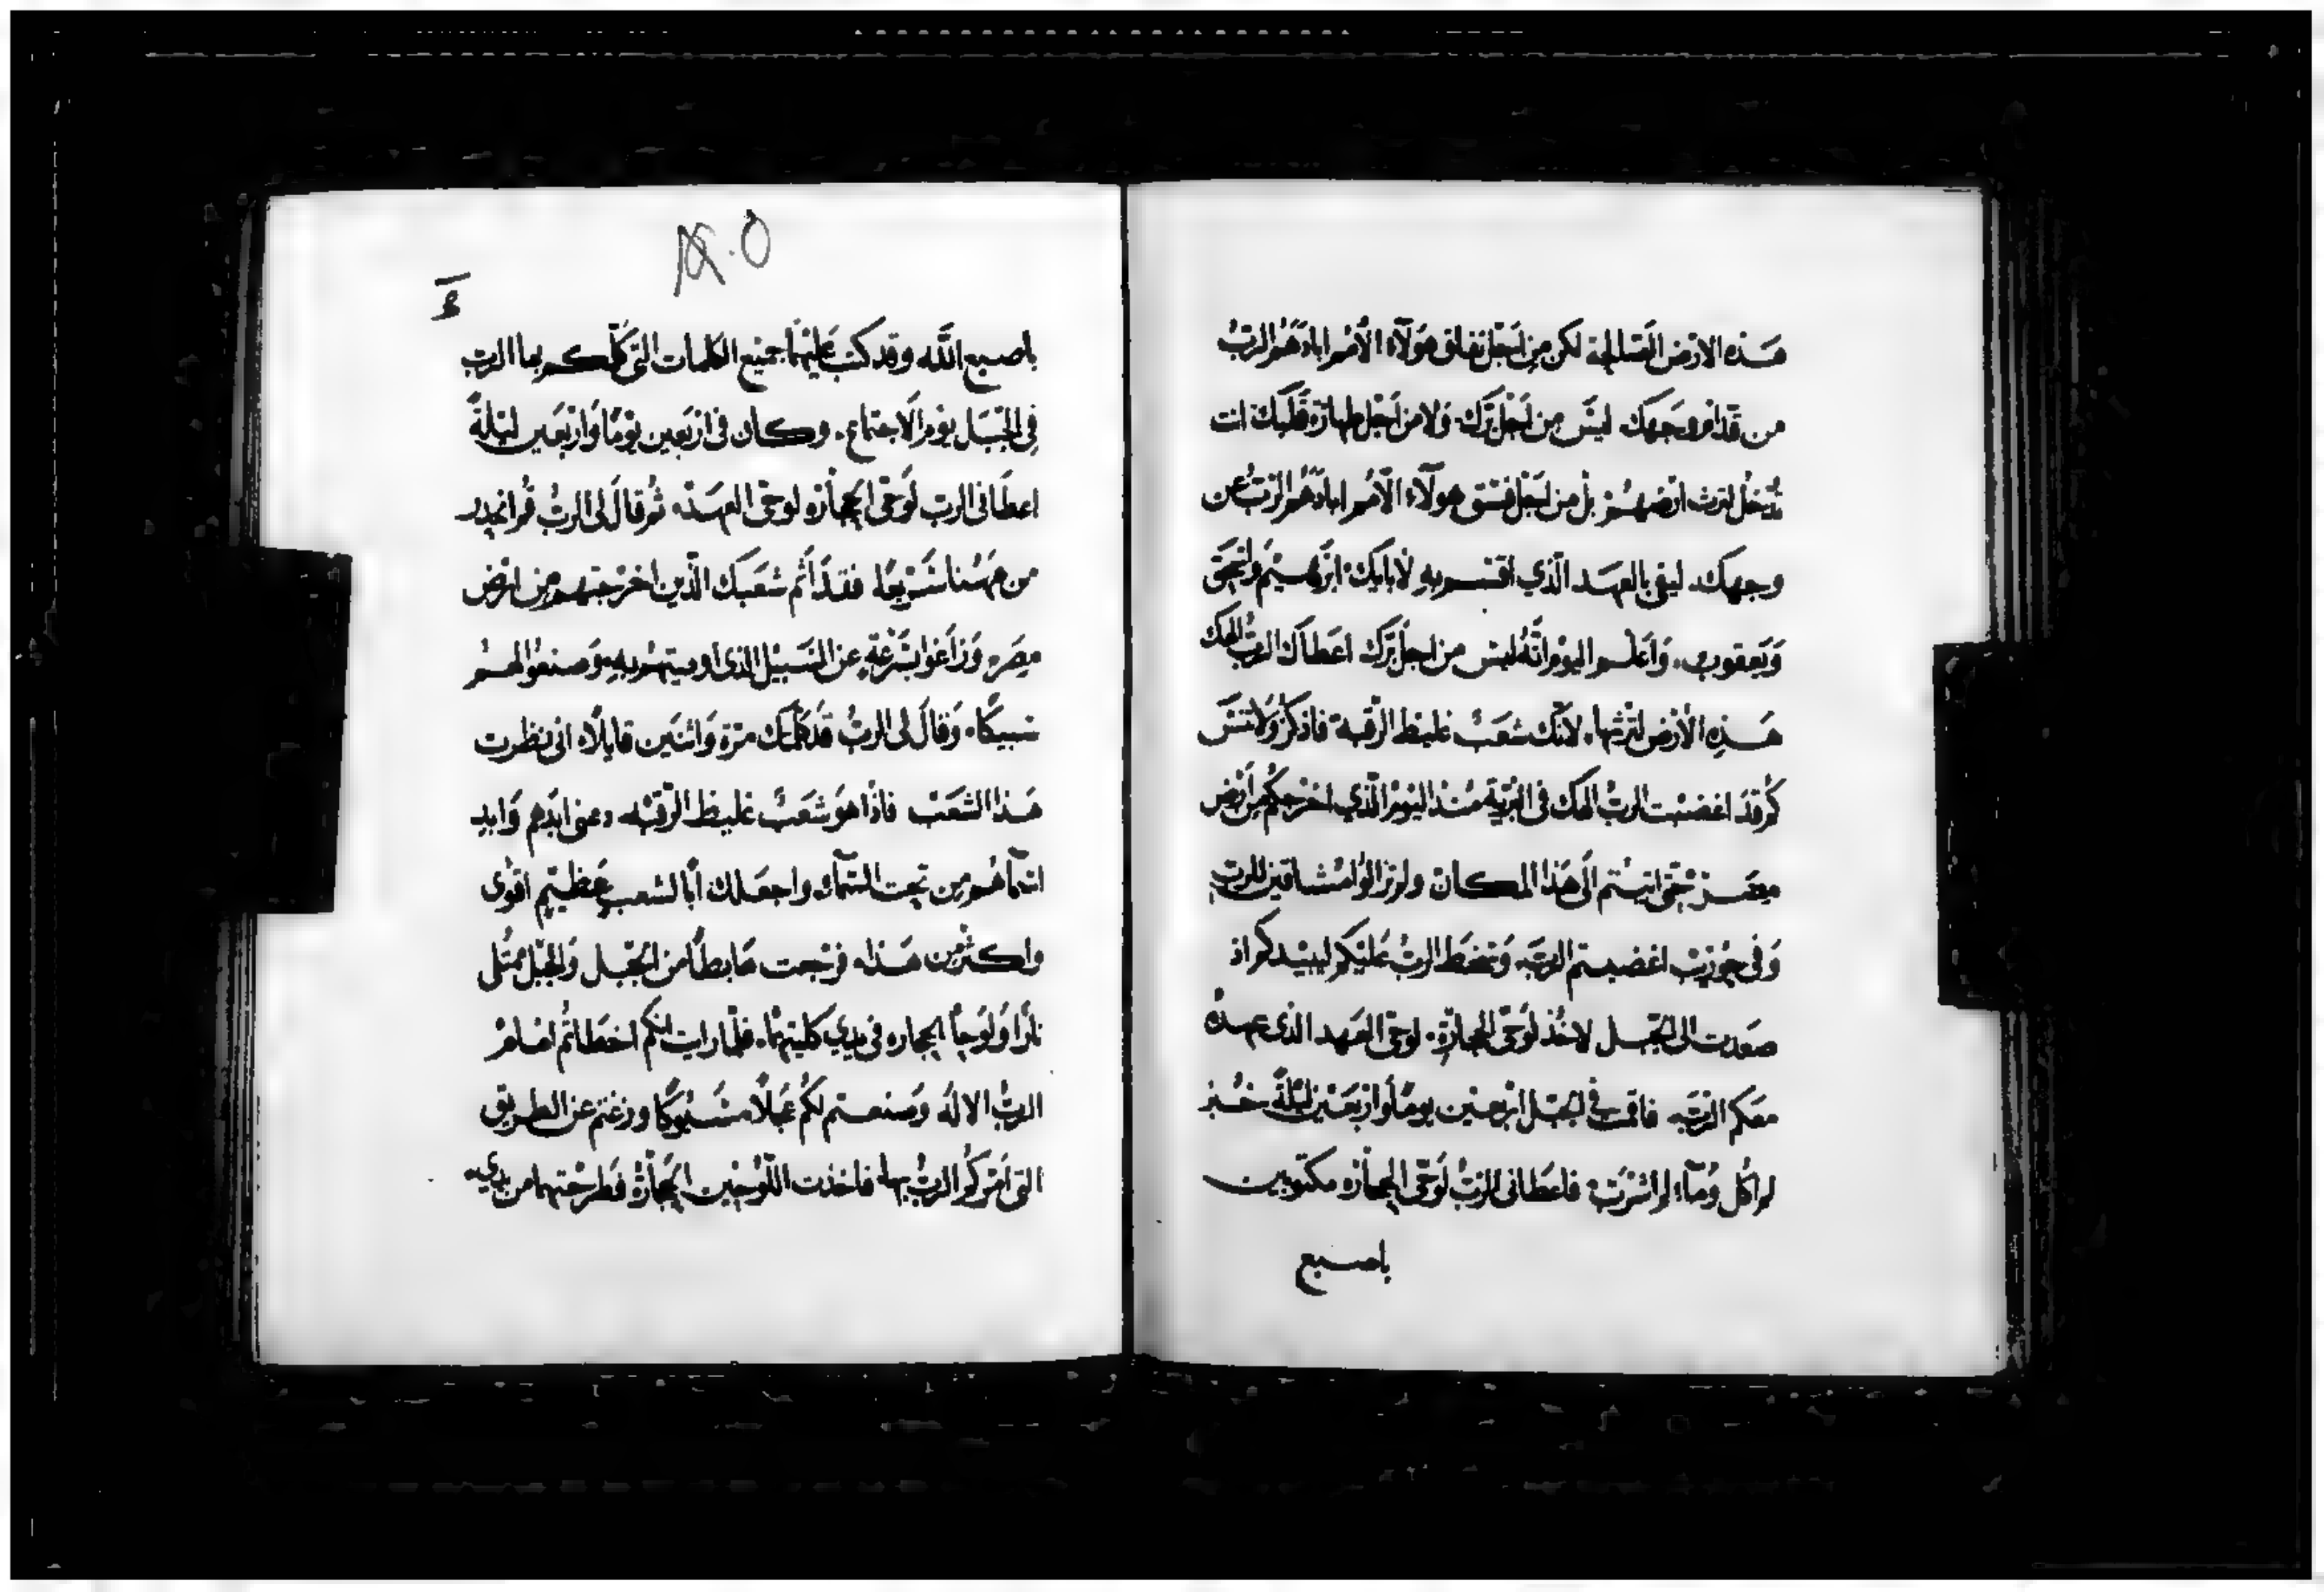 هذه الارض الصالحة لكن من اجل نفاق هولآء الأمم ابادهم الرب
من قدام وجهك ليس من اجل برك ولا من اجل طهارة قلبك انت
تدخل لترث ارضهم بل من اجل فسق هولآء الأمم ابادهم الرب عن
وجهك ليفي بالعهد الذي اقسم به لأبايك ابرهيم واسحق
ويعقوب واعلم اليوم انه ليس من اجل برك اعطاك الرب الهك
هذه الأرض لترثها لانك شعب غليظ الرقبة فاذكر ولا تنس
كم قد اغضبت الرب الهك في البرية منذ اليوم الذي اخرجكم من ارض
مصر حتى اتيتم الى هذا المكان ولم تزالوا مشاقين للرب
وفي حوريب اغضبتم الرب وسخط الرب عليكم ليبيدكم اذ
صعدت الى الجبل لاخذ لوحي الحجارة لوحي العهد الذي عهده
معكم الرب فاقمت في الجبل اربعين يوماً واربعين ليلةً خبز
لم اكل ومآء لم اشرب فاعطاني الرب لوحي الحجارة مكتوبين
باصبع
٤
باصبع الله وقد كتب عليهما جميع الكلمات التي كلمكم بها الرب
في الجبل يوم الاجتماع وكان في اربعين يوماً واربعين ليلةً
اعطاني الرب لوحي الحجارة لوحي العهد ثم قال لي الرب قم انحدر
من ههنا سريعاً فقد أثم شعبك الذين اخرجتهم من ارض
مصر وزاغوا بسرعة عن السبيل الذي اوصيتهم به وصنعوا لهم
سبيكا وقال لي الرب قد كلمتك مرة واثنين قايلاً اني نظرت
هذا الشعب فاذا هو شعب غليظ الرقبه دعني ابدهم وابيد
اسمآهم من تحت السمآء واجعلك أبا لشعب عظيم اقوى
واكثر من هذا فرجعت هابطاً من الجبل والجبل ممتلى
ناراً ولوحا الحجارة في يدي كليتهما فلما رايت انكم اخطاتم امام
الرب الاله وصنعتم لكم عجلاً مسبوكا وزغتم عن الطريق
التي امركم الرب بها فاخذت اللوحين الحجارة فطرحتهما من يدي